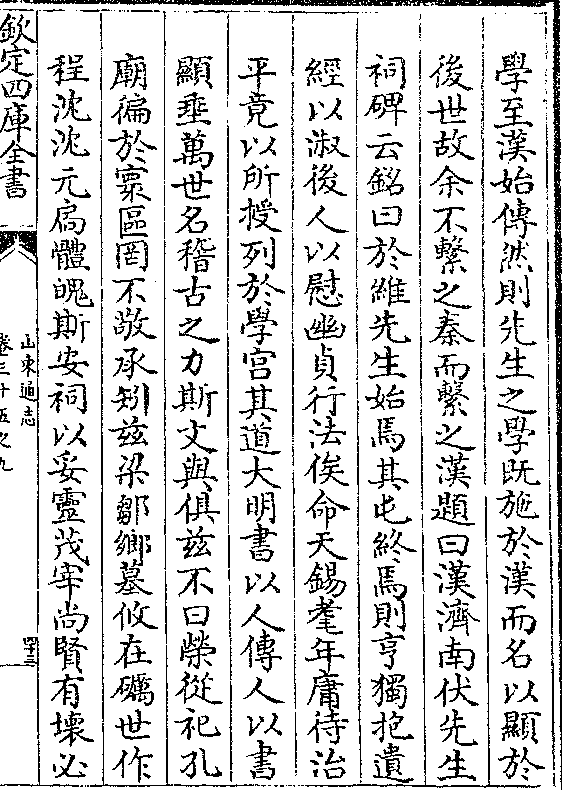 學至漢始傳然則先生之學既施於漢而名以顯於
後世故余不繫之秦而繫之漢題曰漢濟南伏先生
祠碑云銘曰於維先生始焉其屯終焉則亨獨抱遺
經以淑後人以慰幽貞行法俟命天錫耄年庸待治
平竟以所授列於學宫其道大明書以人傳人以書
顯垂萬世名稽古之力斯文與俱兹不曰榮從祀孔
廟徧於寰區罔不敬承矧兹梁鄒鄉墓攸在礪世作
程沈沈元扃體魄斯安祠以妥靈茂宰尚賢有壞必
欽定四庫全書
山東通志
卷三十五之九
四十三